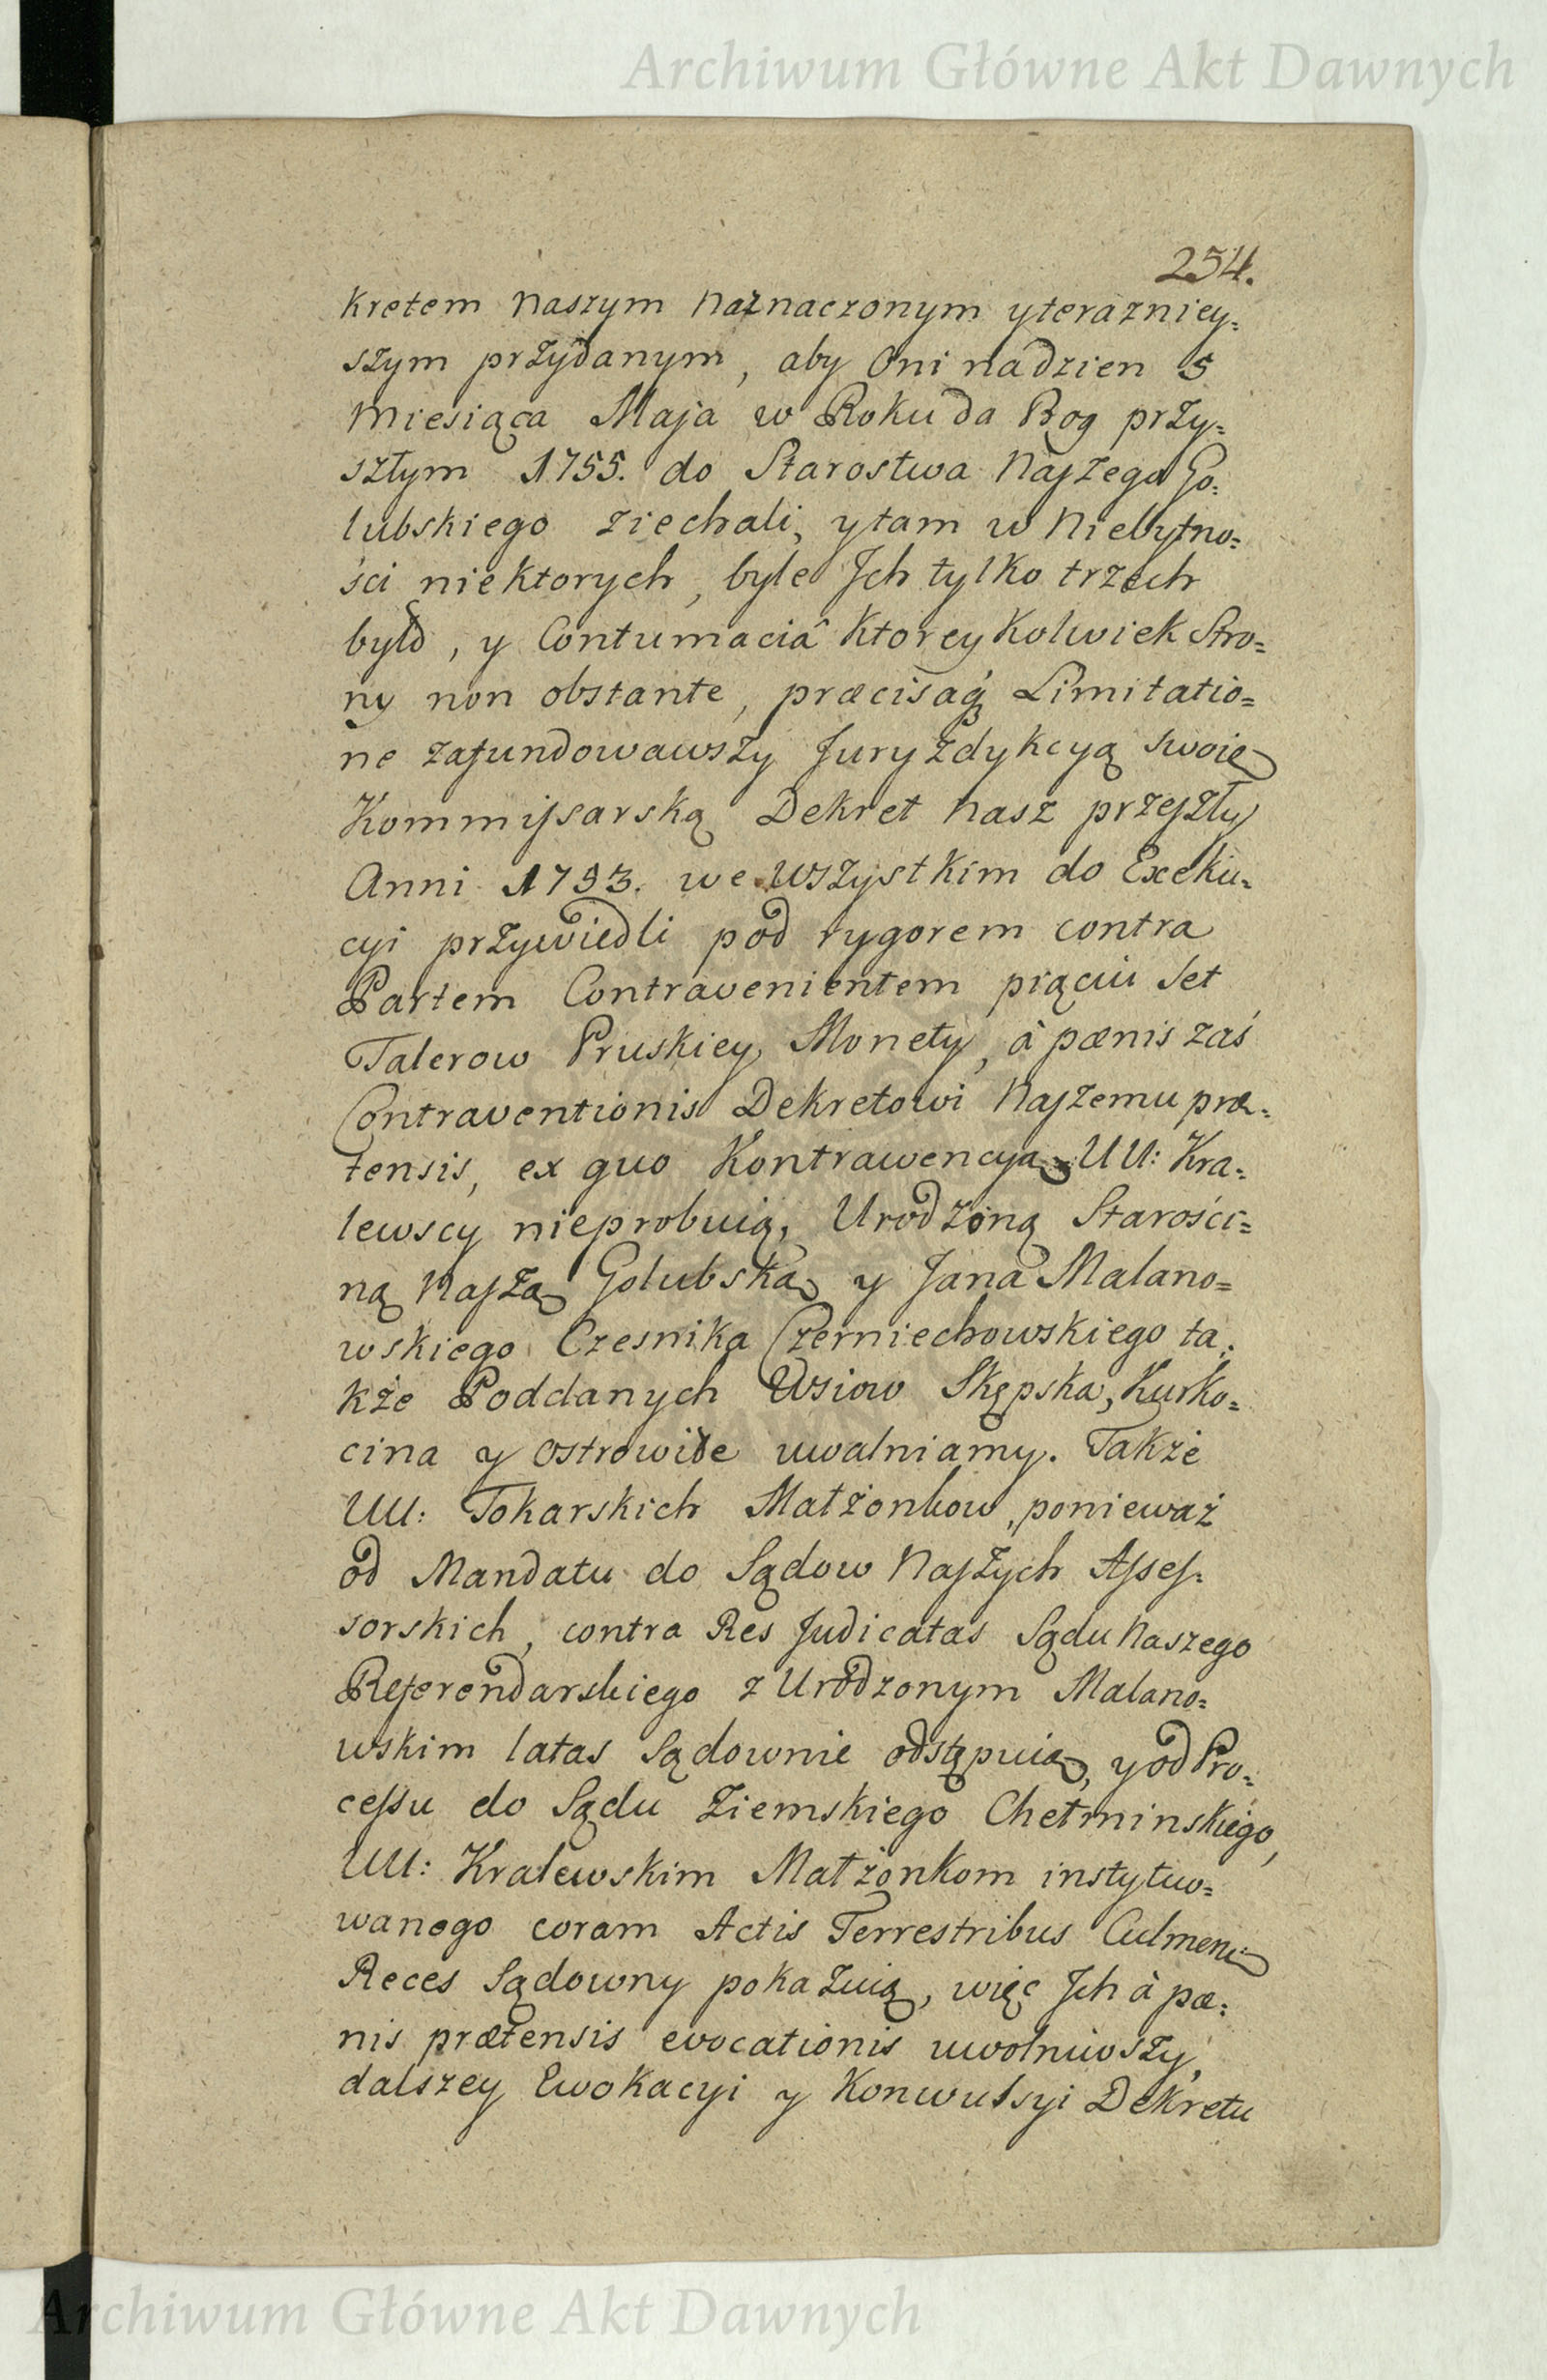 Archiwum Główne Akt Dawnych
254.
kretem Naszym Naznaczonym y terazniey=
szym przydanym, aby Oni nadzien 5
Miesiąca Maja w Roku da Bog przy=
szłym 1755. do Starostwa Naszego Go=
lubskiego ziechali, y tam w Niebytno=
ści niektorych, byle Ich tylko trzech
było, y Contumaciâ Ktorey Kolwiek Stro=
ny non obstante, præcisaq; Limitatio=
ne zafundowawszy Juryzdykcyą swoię
Kommissarską Dekret Nasz przeszły
Anni 1753. we wszystkim do Exeku=
cyi przywiedli pod rygorem contra
Partem Contravenientem piąciu Set
Talerow Pruskiey Monety, à pænis zaś
Contraventionis Dekretowi Naszemu præ=
tensis, ex quo Kontrawencyą UU: Kra=
lewscy nieprobuią, Urodzoną Starości=
ną Naszą Golubską y Jana Malano=
wskiego Czesnika Czerniechowskiego ta=
kże Poddanych Wsiow Skępska, Kurko=
cina y Ostrowite uwalniamy. Także
UU: Tokarskich Małżonkow, ponieważ
od Mandatu do Sądow Naszych Asses=
sorskich, contra Res Judicatas Sądu Naszego
Referendarskiego z Urodzonym Malano=
wskim latas Sądownie odstępuią, y od Pro=
cessu do Sądu Ziemskiego Chełminskiego,
UU: Kralewskim Małżonkom instytuo=
wanego coram Actis Terrestribus Culmen:
Reces Sądowny pokazuią, więc Ich à pæ=
nis prætensis evocationis uwolniwszy,
dalszey Ewokacyi y Konwulsyi Dekretu
Archiwum Główne Akt Dawnych